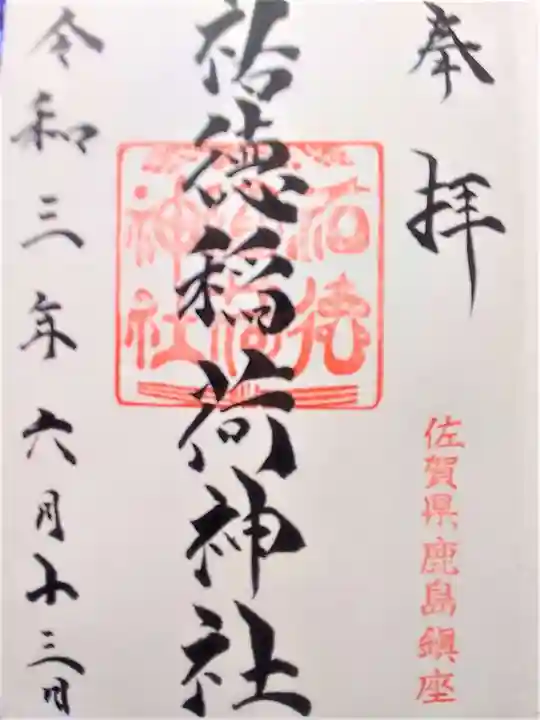 奉拝
佐賀県鹿島鎮座
祐徳稲荷神社
祐徳稲荷神社
令和三年六月十三日